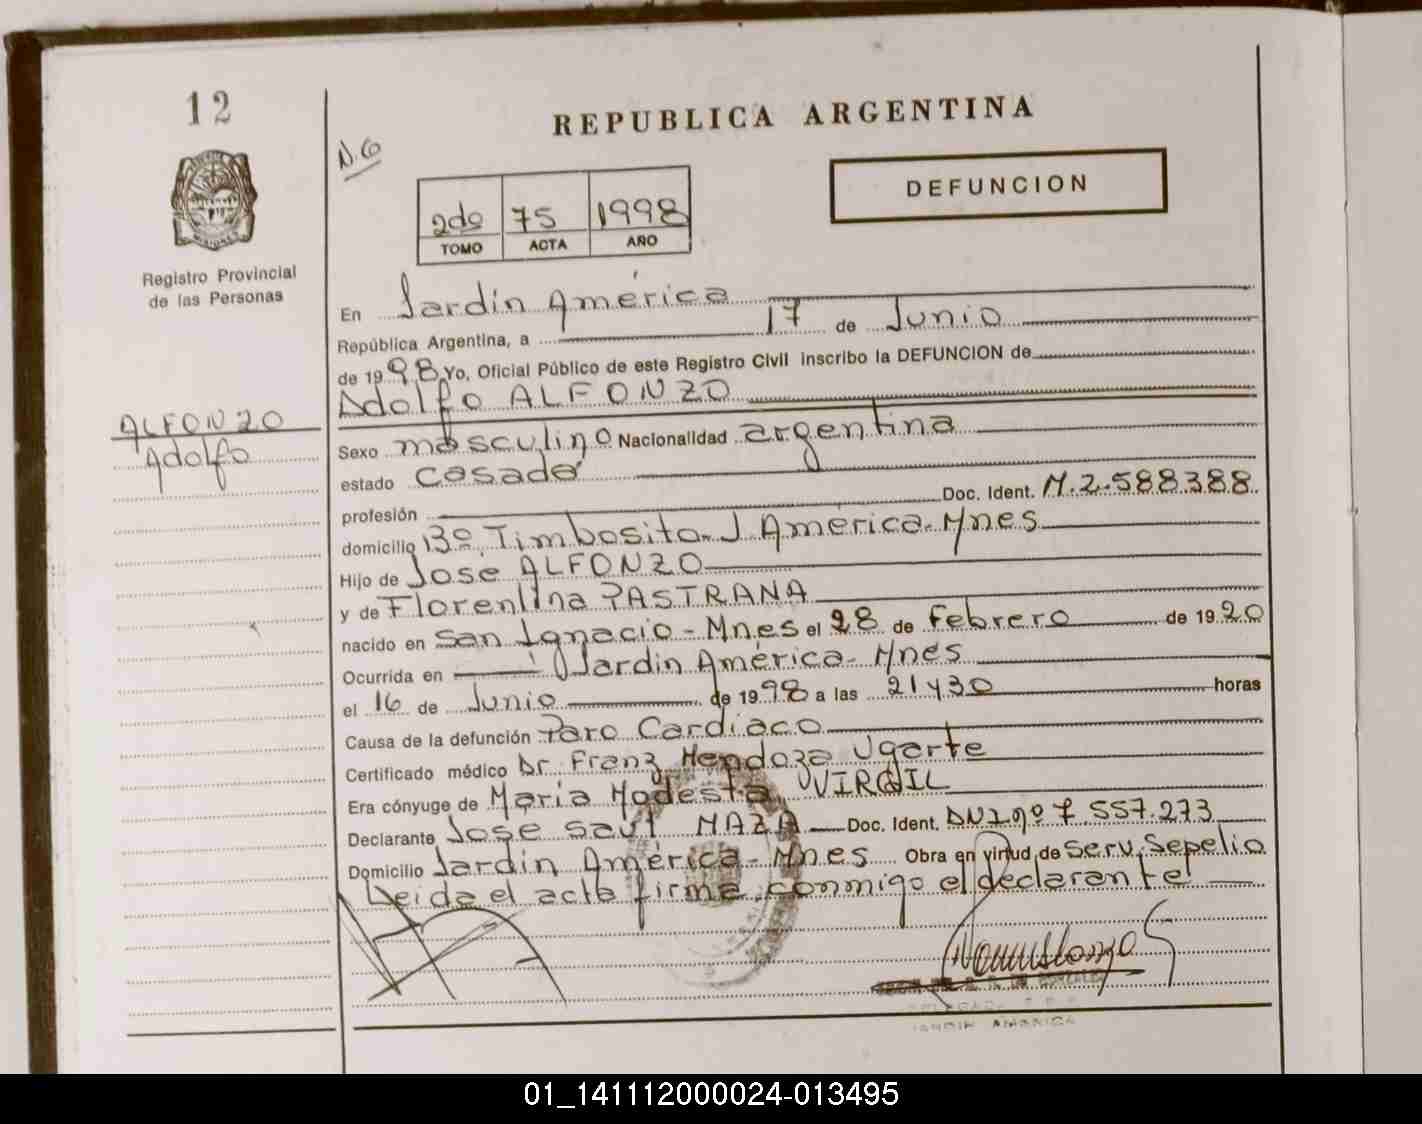 12
Registro Provincial
de las Personas
ALFONZO
Adolfo
N.G
REPUBLICA ARGENTINA
DEFUNCION
2do 75 1998
TOMO ACTA AÑO
En Jardin América
República Argentina, a 17 de Junio
de 1998 Yo, Oficial Público de este Registro Civil inscribo la DEFUNCION de
Adolfo ALFONZO
Sexo masculino Nacionalidad argentina
estado casado
profesión Doc. Ident. M.2.588.388
domicilio Bº. Timbosito. J. América. Mnes
Hijo de Jose ALFONZO
y de Florentina PASTRANA
nacido en San Ignacio - Mnes el 28 de Febrero de 1920
Ocurrida en Jardin América - Mnes
el 16 de Junio de 1998 a las 21 y 30 horas
Causa de la defunción Paro Cardiaco
Certificado médico Dr. Franz Mendoza Ugarte
Era cónyuge de Maria Modesta VIRGIL
Declarante Jose Saul MAZA Doc. Ident. DNI nº 7.557.273
Domicilio Jardin América - Mnes Obra en virtud de Serv. Sepelio
Leida el acta firma conmigo el declarante
DE GONZALEZ
JARDIN AMERICA
01_141112000024-013495